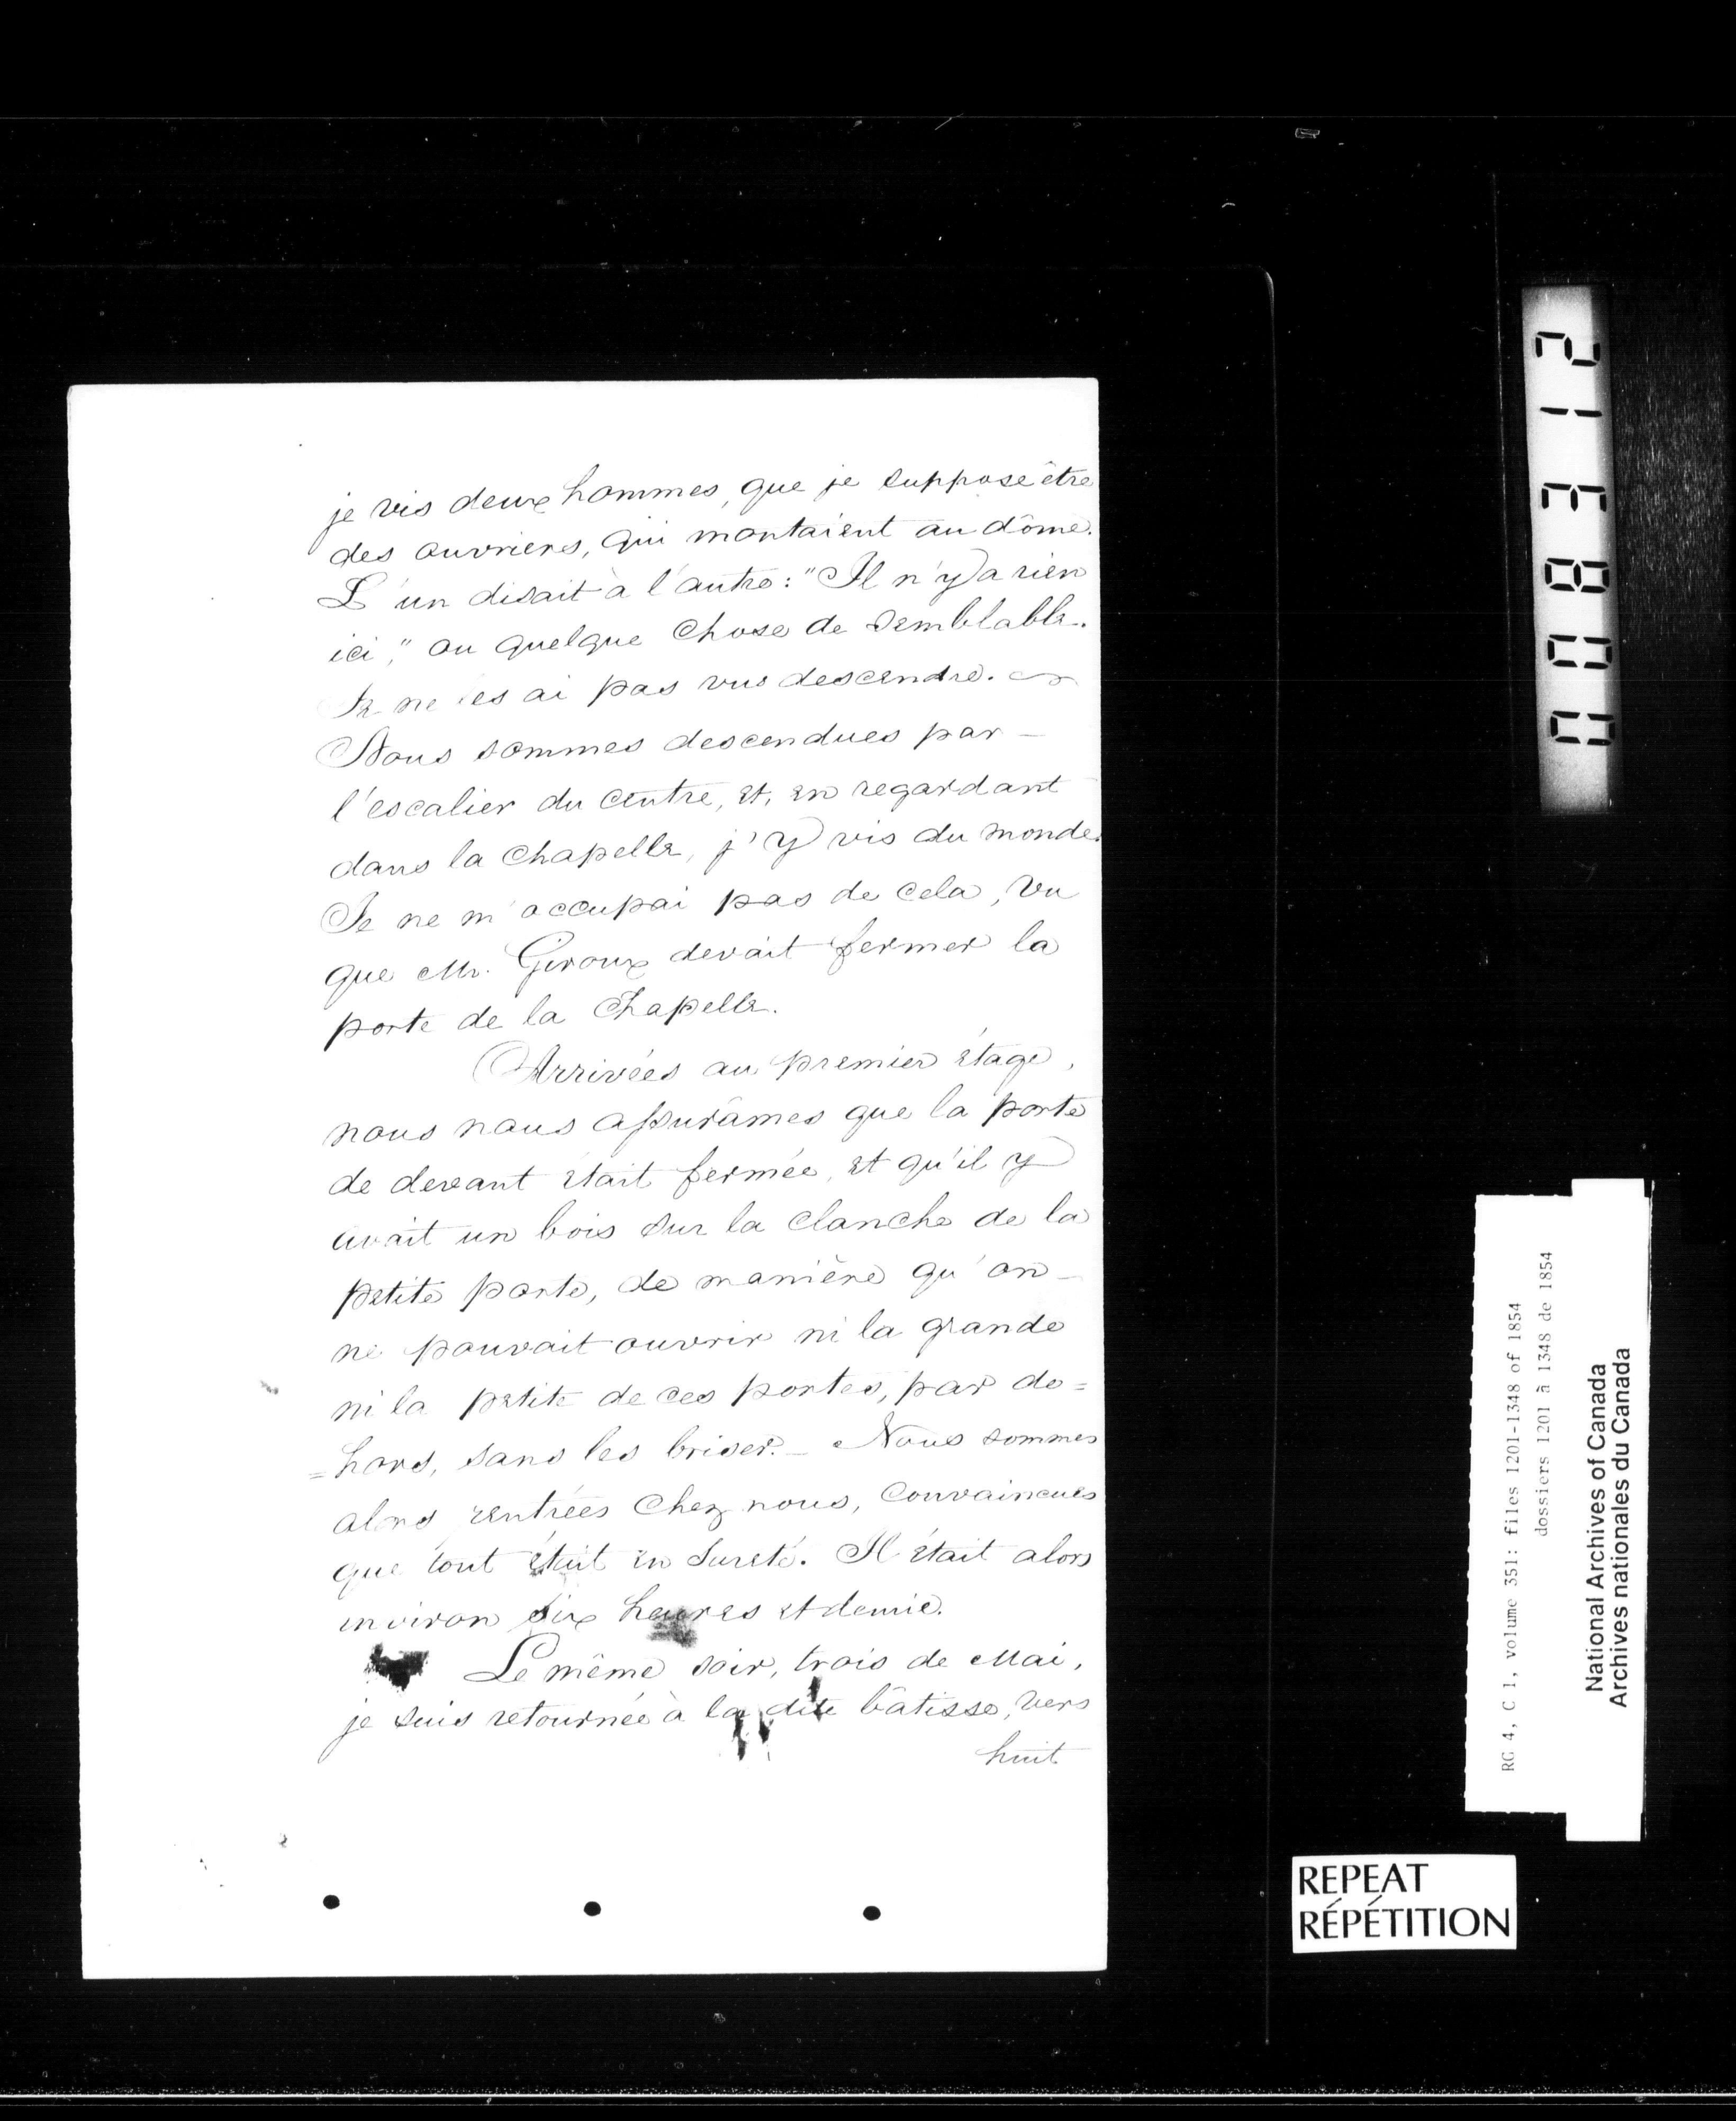 je vis deux hommes, que je suppose être
des ouvriers, qui montaient au dôme.
L'un disait à l'autre : "Il n'y a rien
ici," ou quelque chose de semblable.
Je ne les ai pas vus descendre.
Nous sommes descendues par -
l'escalier du centre, et, en regardant
dans la chapelle, j'y vis du monde.
Je ne m'occupai pas de cela, vu
que Mr. Giroux devait fermer la
porte de la Chapelle.
Arrivées au premier étage,
nous nous assurâmes que la porte
de devant était fermée, et qu'il y
avait un bois sur la clanche de la
petite porte, de manière qu'on -
ne pouvait ouvrir ni la grande
ni la petite de ces portes, par de=
=hors, sans les briser. - Nous sommes
alors rentrées chez nous, convaincues
que tout était en sureté. Il était alors
environ six heures et demie.
Le même soir, trois de Mai,
je suis retournée à la dite bâtisse, vers
huit
008312
RG 4, C 1, volume 351: files 1201-1348 of 1854
dossiers 1201 à 1348 de 1854
National Archives of Canada
Archives nationales du Canada
REPEAT
RÉPÉTITION